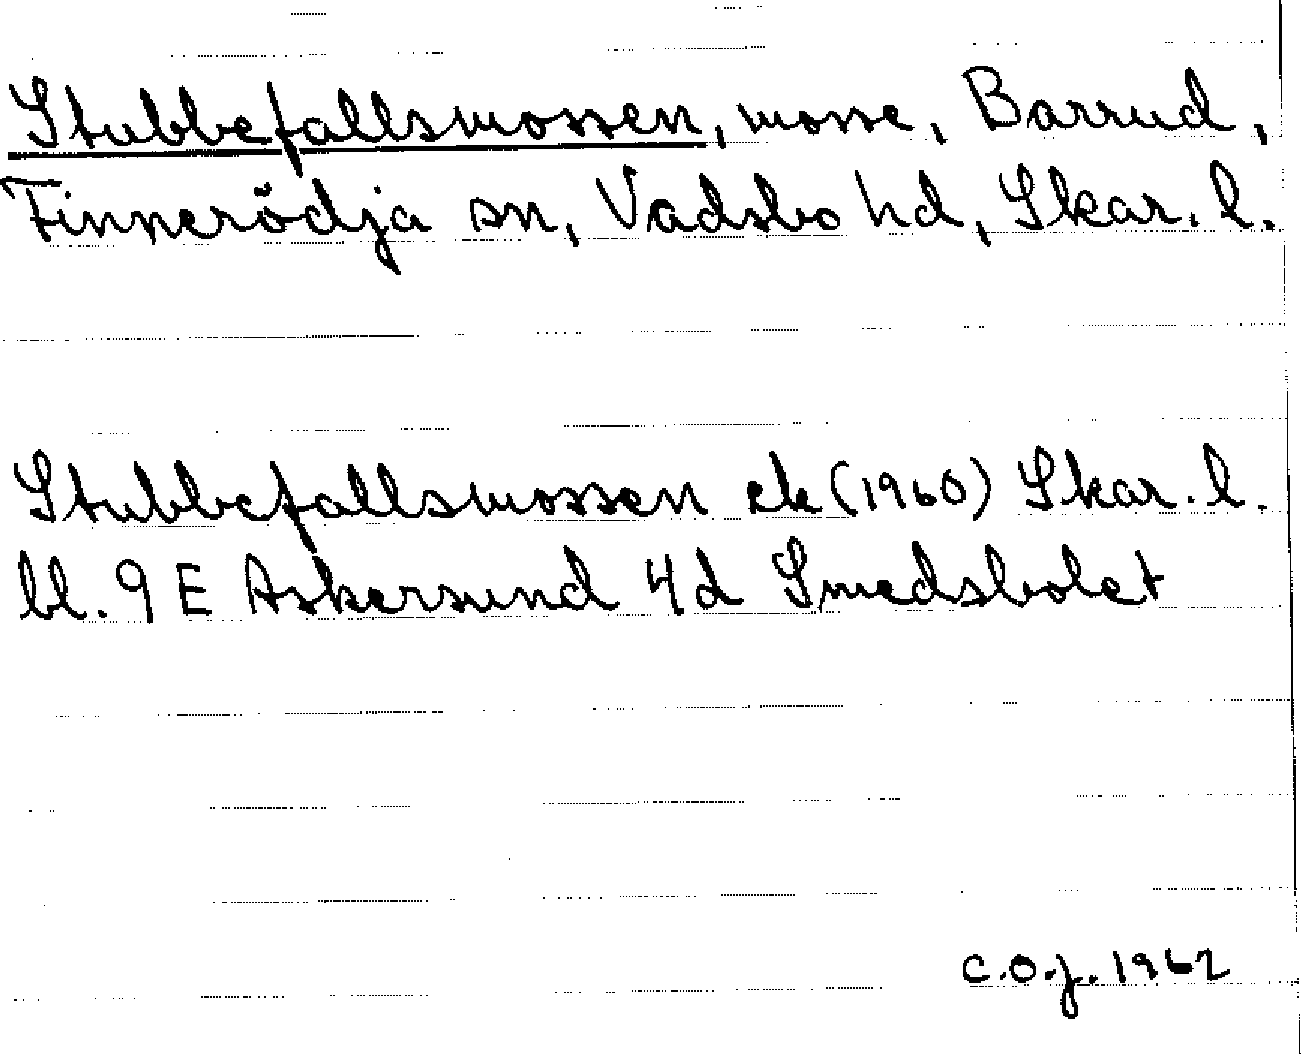 Stubbefallsmossen, mosse, Barrud,
Finnerödja sn, Vadsbo hd, Skar. l.
Stubbefallsmossen ek (1960) Skar. l.
bl. 9 E Askersund 4d Smedsbolet
C.O.J. 1962